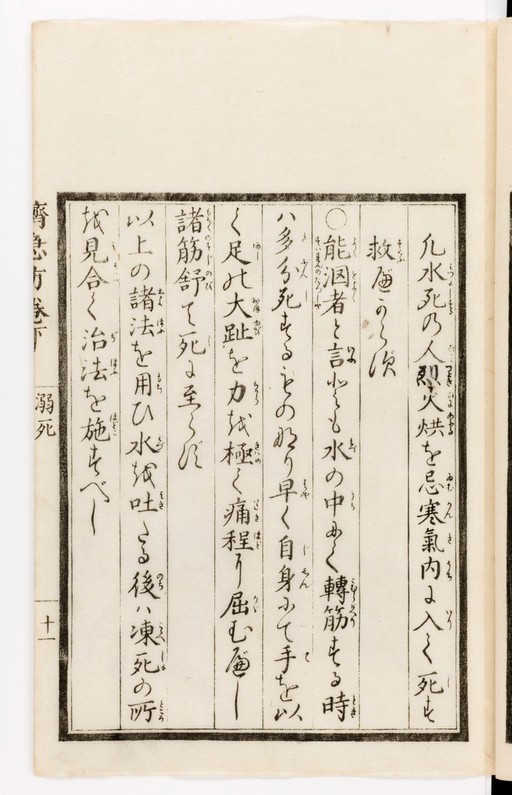 凡水死の人烈火烘を忌寒氣内に入て死す
救べからず
〇能泅者と言ども水の中にて轉筋する時
ハ多分死するもの也早く自身にて手を以
て足の大趾を力を極て痛程に屈むべし
諸筋舒て死に至らず
以上の諸法を用ひ水を吐たる後ハ凍死の所
を見合て治法を施すべし
濟急方卷下
溺死
十一